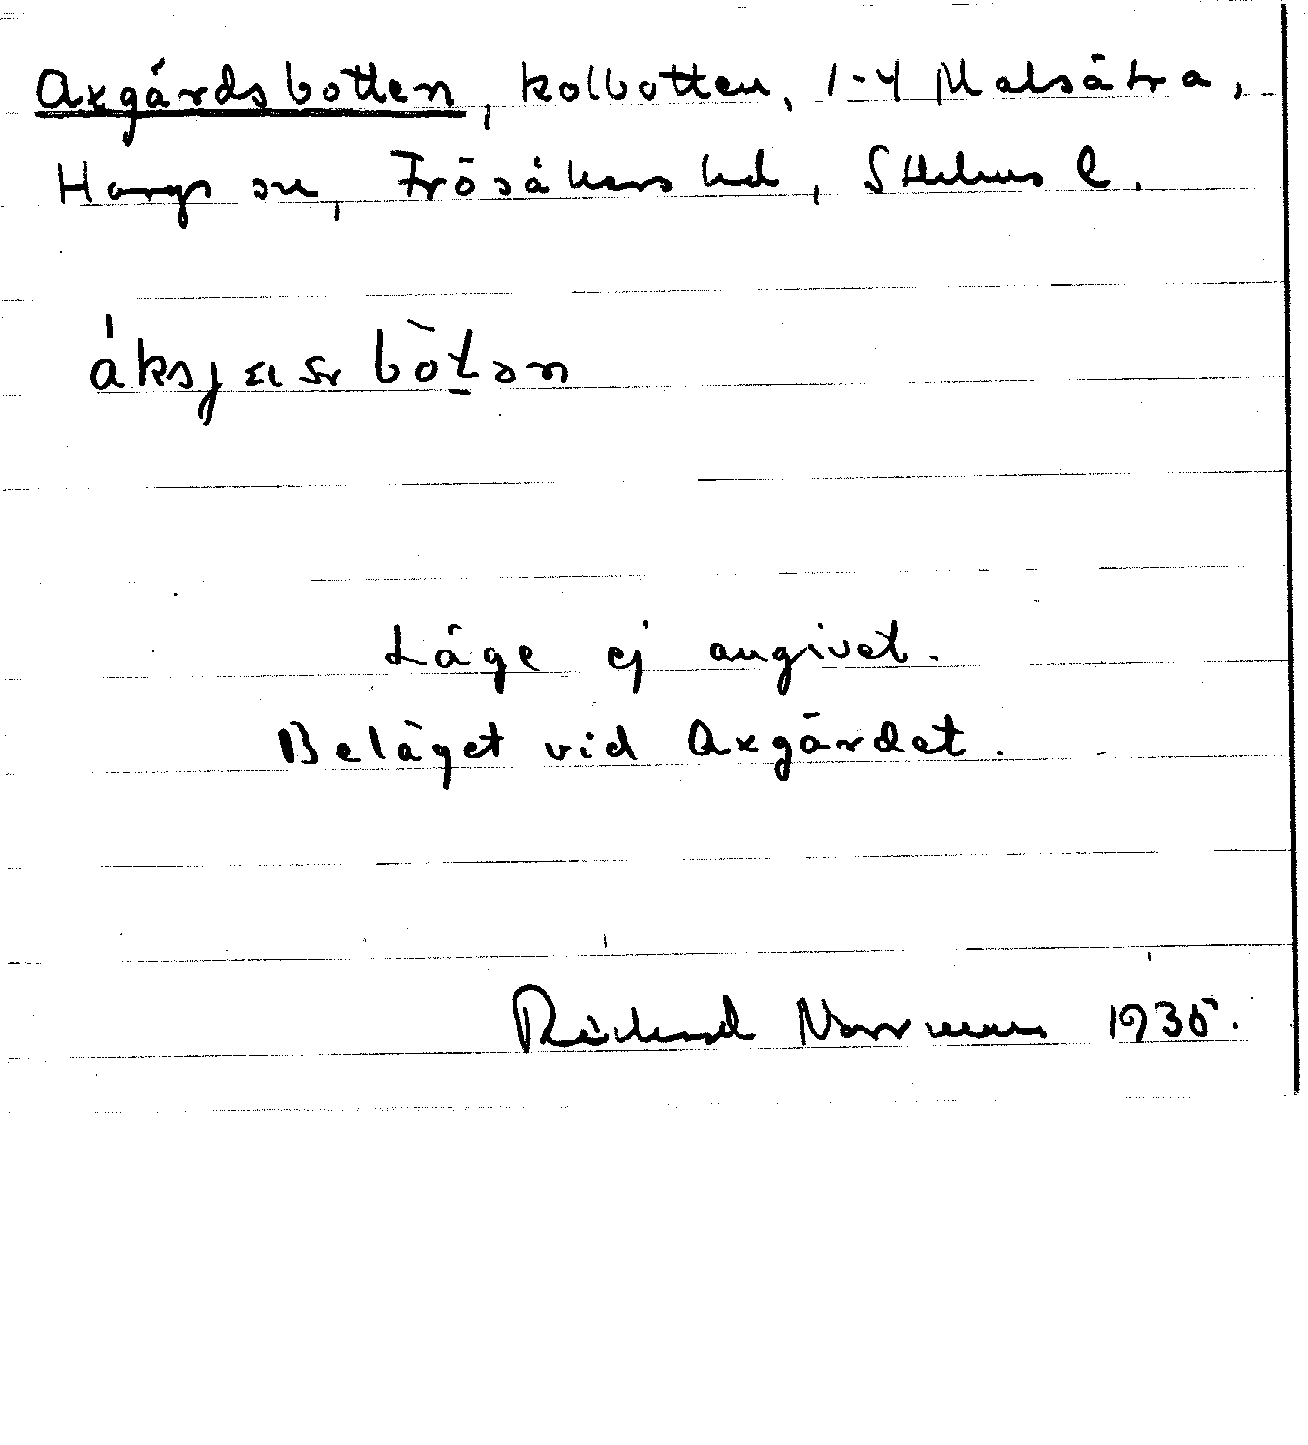 Axgärdsbotten, kolbotten, 1-4 Malsätra,
Hargs sn, Frösåkers hd, Sthlms l.
Läge ej angivet.
Beläget vid Axgärdet.
Richard Norrman 1935.